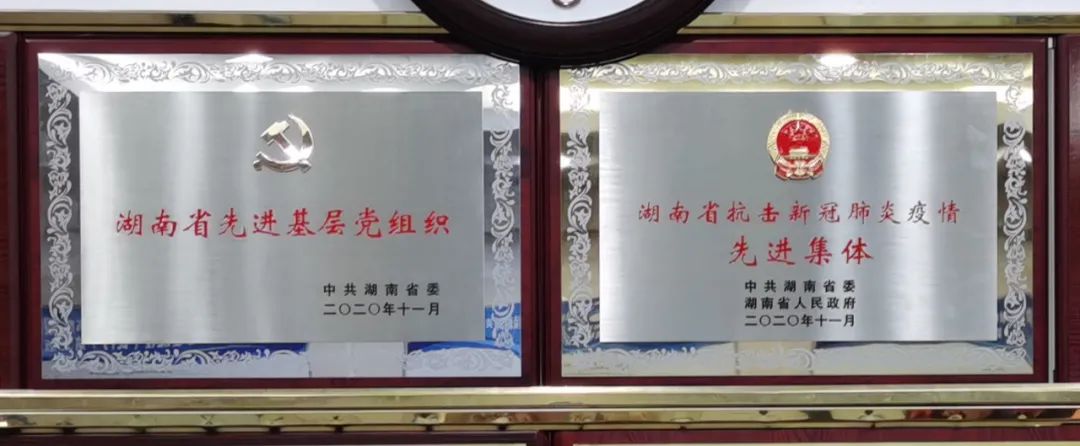 湖南省先进基层党组织
中共湖南省委
二〇二〇年十一月
湖南省抗击新冠肺炎疫情
先进集体
中共湖南省委
湖南省人民政府
二〇二〇年十一月